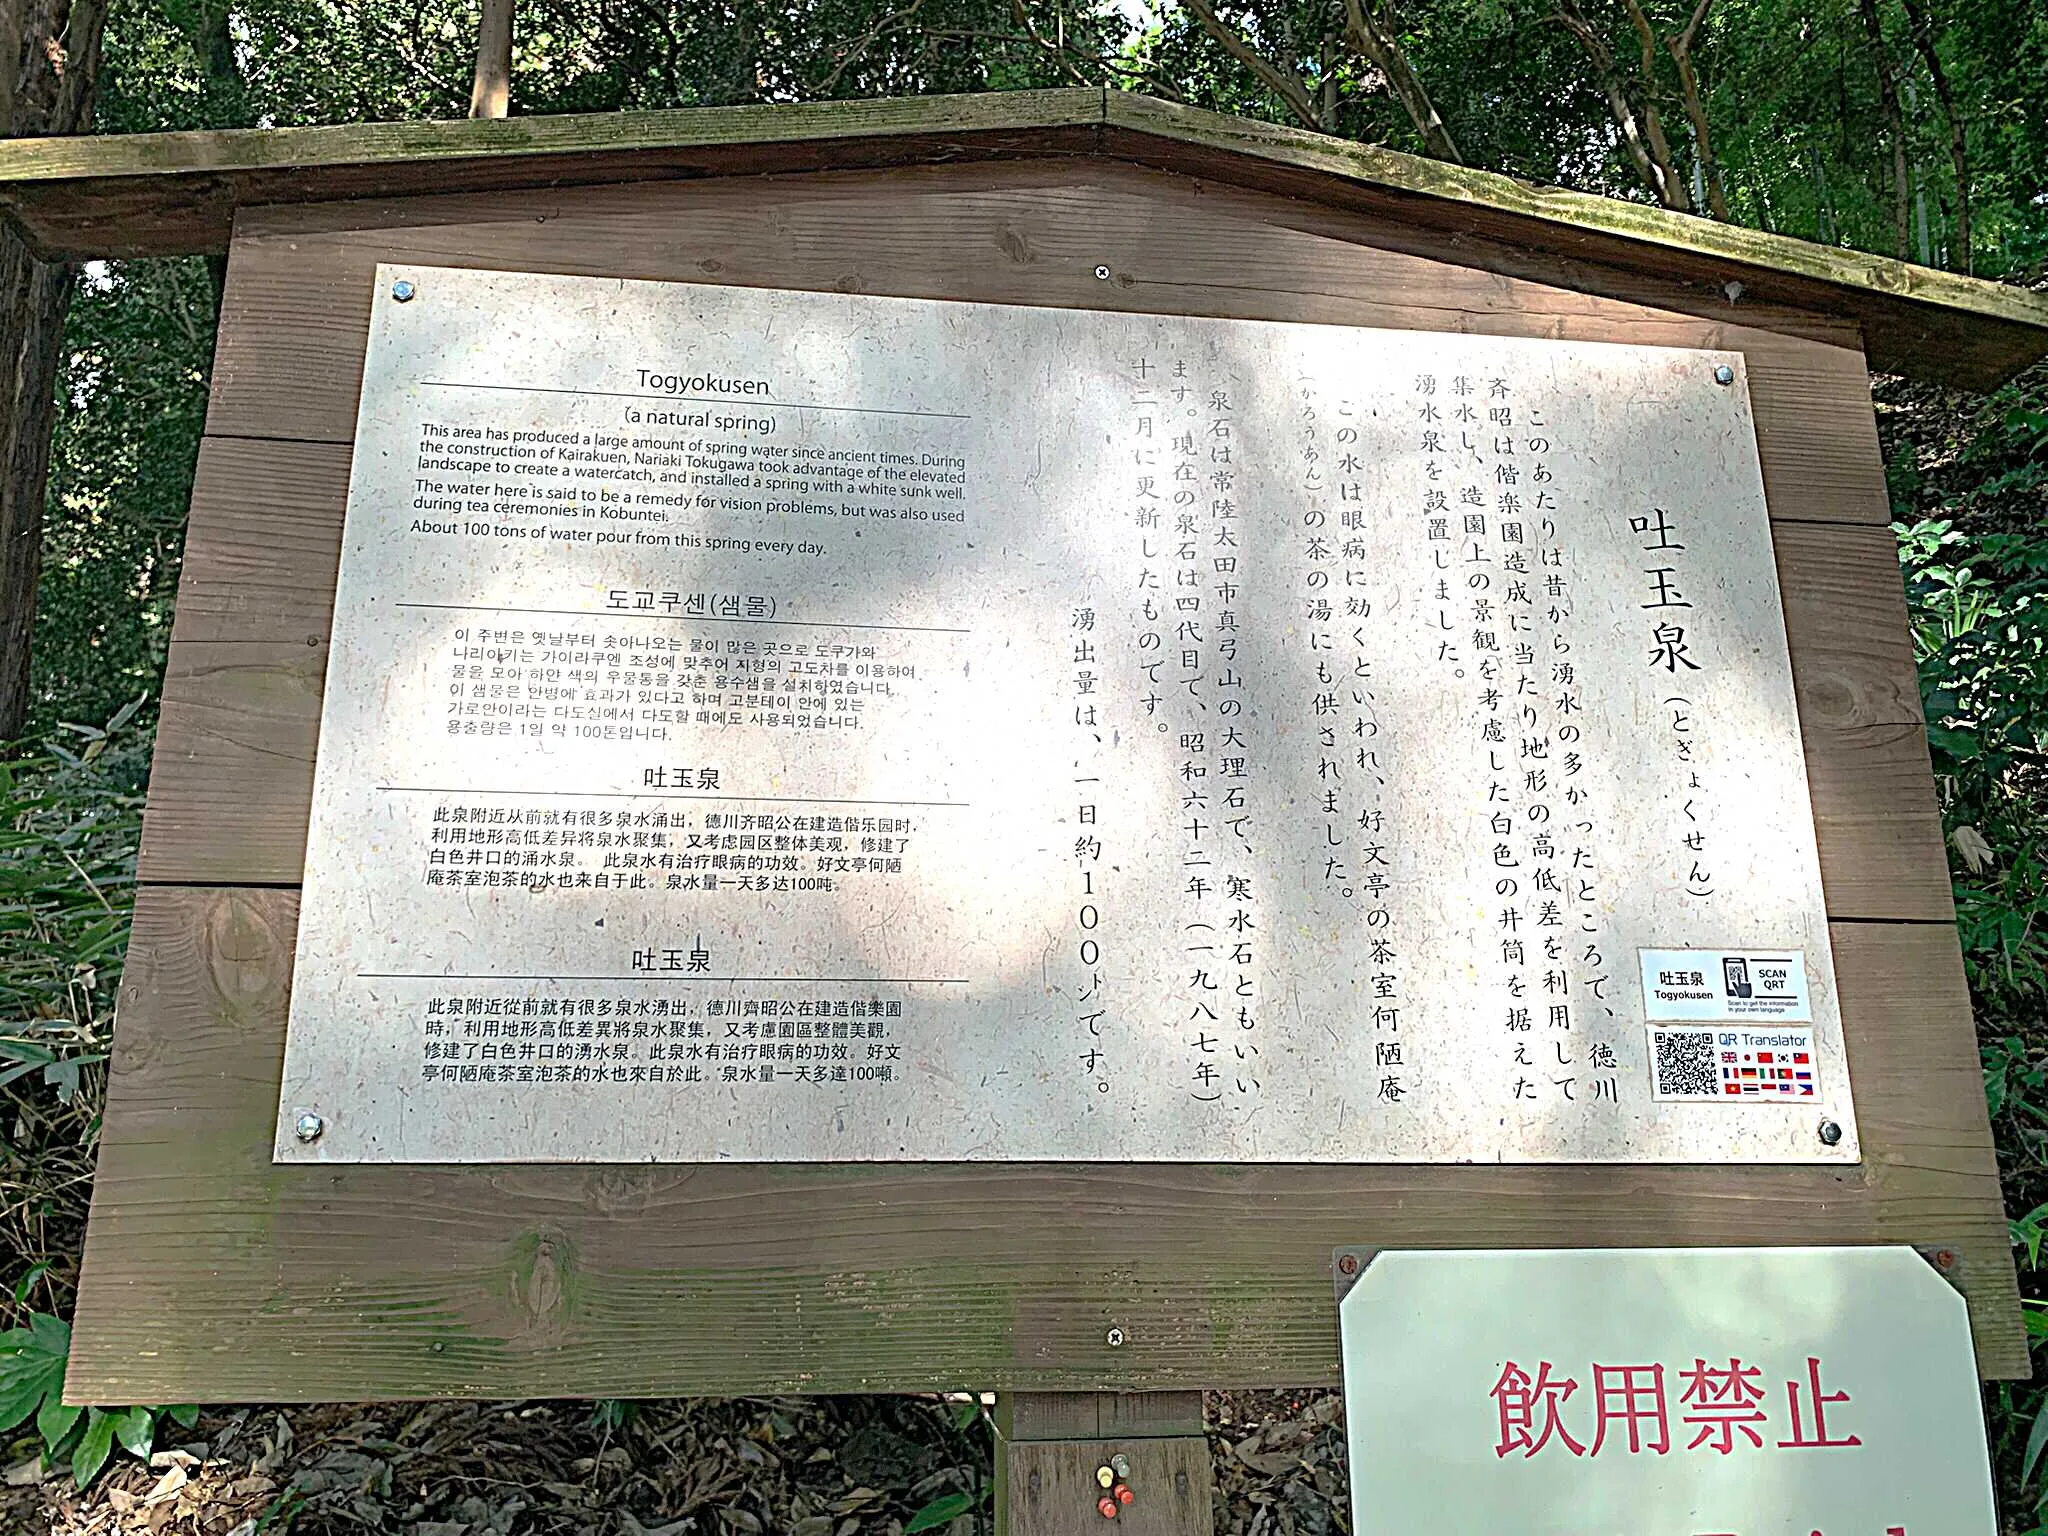 Togyokusen
(a natural spring)
This area has produced a large amount of spring water since ancient times. During
the construction of Kairakuen, Nariaki Tokugawa took advantage of the elevated
landscape to create a watercatch, and installed a spring with a white sunk well.
The water here is said to be a remedy for vision problems, but was also used
during tea ceremonies in Kobuntei.
About 100 tons of water pour from this spring every day.
도교쿠센(샘물)
이 주변은 옛날부터 솟아나오는 물이 많은 곳으로 도쿠가와
나리아키는 가이라쿠엔 조성에 맞추어 지형의 고도차를 이용하여
물을 모아 하얀 색의 우물통을 갖춘 용수샘을 설치하였습니다.
이 샘물은 안병에 효과가 있다고 하며 고분테이 안에 있는
가로안이라는 다도실에서 다도할 때에도 사용되었습니다.
용출량은 1일 약 100톤입니다.
吐玉泉
此泉附近从前就有很多泉水涌出，德川齐昭公在建造偕乐园时，
利用地形高低差异将泉水聚集，又考虑园区整体美观，修建了
白色井口的涌水泉。 此泉水有治疗眼病的功效。好文亭何陋
庵茶室泡茶的水也来自于此。泉水量一天多达100吨。
吐玉泉
此泉附近從前就有很多泉水湧出，德川齊昭公在建造偕樂園
時，利用地形高低差異將泉水聚集，又考慮園區整體美觀，
修建了白色井口的湧水泉。此泉水有治疗眼病的功效。好文
亭何陋庵茶室泡茶的水也來自於此。泉水量一天多達100噸。
吐玉泉（とぎょくせん）
このあたりは昔から湧水の多かったところで、徳川
斉昭は偕楽園造成に当たり地形の高低差を利用して
集水し、造園上の景観を考慮した白色の井筒を据えた
湧水泉を設置しました。
この水は眼病に効くといわれ、好文亭の茶室何陋庵
（かろうあん）の茶の湯にも供されました。
泉石は常陸太田市真弓山の大理石で、寒水石ともいい
ます。現在の泉石は四代目で、昭和六十二年（一九八七年）
十二月に更新したものです。
湧出量は、一日約１００㌧です。
吐玉泉
Togyokusen
SCAN
QRT
Scan to get the information
in your own language
QR Translator
飲用禁止